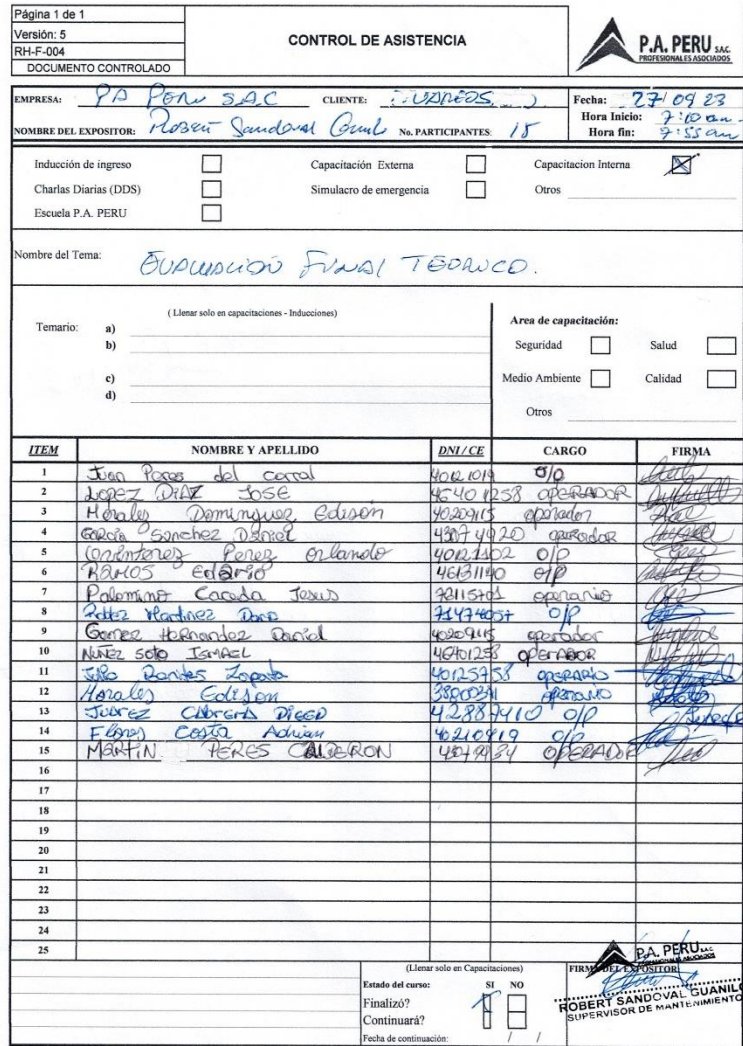 Página 1 de 1
Versión: 5
RH-F-004
DOCUMENTO CONTROLADO
CONTROL DE ASISTENCIA
P.A. PERU SAC
PROFESIONALES ASOCIADOS
EMPRESA: PA PERU S.A.C CLIENTE:
Fecha: 27/09 23
Hora Inicio: 7:10 am
NOMBRE DEL EXPOSITOR: Robert Sandoval No. PARTICIPANTES: 15
Hora fin: 7:55 am
Inducción de ingreso Capacitación Externa Capacitacion Interna
Charlas Diarias (DDS) Simulacro de emergencia Otros
Escuela P.A. PERU
Nombre del Tema: EVALUACION FINAL TEORICO.
( Llenar solo en capacitaciones - Inducciones)
Temario: a)
b)
c)
d)
Area de capacitación:
Seguridad Salud
Medio Ambiente Calidad
Otros
ITEM NOMBRE Y APELLIDO DNI / CE CARGO FIRMA
1 Juan Peres del corral 40121019 O/P
2 LOPEZ DIAZ JOSE 46401258 OPERADOR
3 Morales Dominguez Edison 40209115 operador
4 Garcia Sanchez Daniel operador
5 Perez orlando 40121102 O/P
6 RAMOS 46131140 O/P
7 Palomino Caceda Jesus 72115701 operario
8 Martinez 71474057 O/P
9 Gomez Hernandez Daniel 40209115 operador
10 NUÑEZ SOTO ISMAEL 46401258 OPERADOR
11 Julio Zapata 40125758 OPERARIO
12 Morales Edison operario
13 JUAREZ CABRERA DIEGO 42887410 O/P
14 Flores Costa Adrian 40210919 O/P
15 MARTIN PERES CALDERON OPERADOR
16
17
18
19
20
21
22
23
24
25
(Llenar solo en Capacitaciones)
Estado del curso: SI NO
Finalizó?
Continuará?
Fecha de continuación: / /
FIRMA DEL EXPOSITOR:
P.A. PERU SAC
PROFESIONALES ASOCIADOS
ROBERT SANDOVAL GUANILO
SUPERVISOR DE MANTENIMIENTO